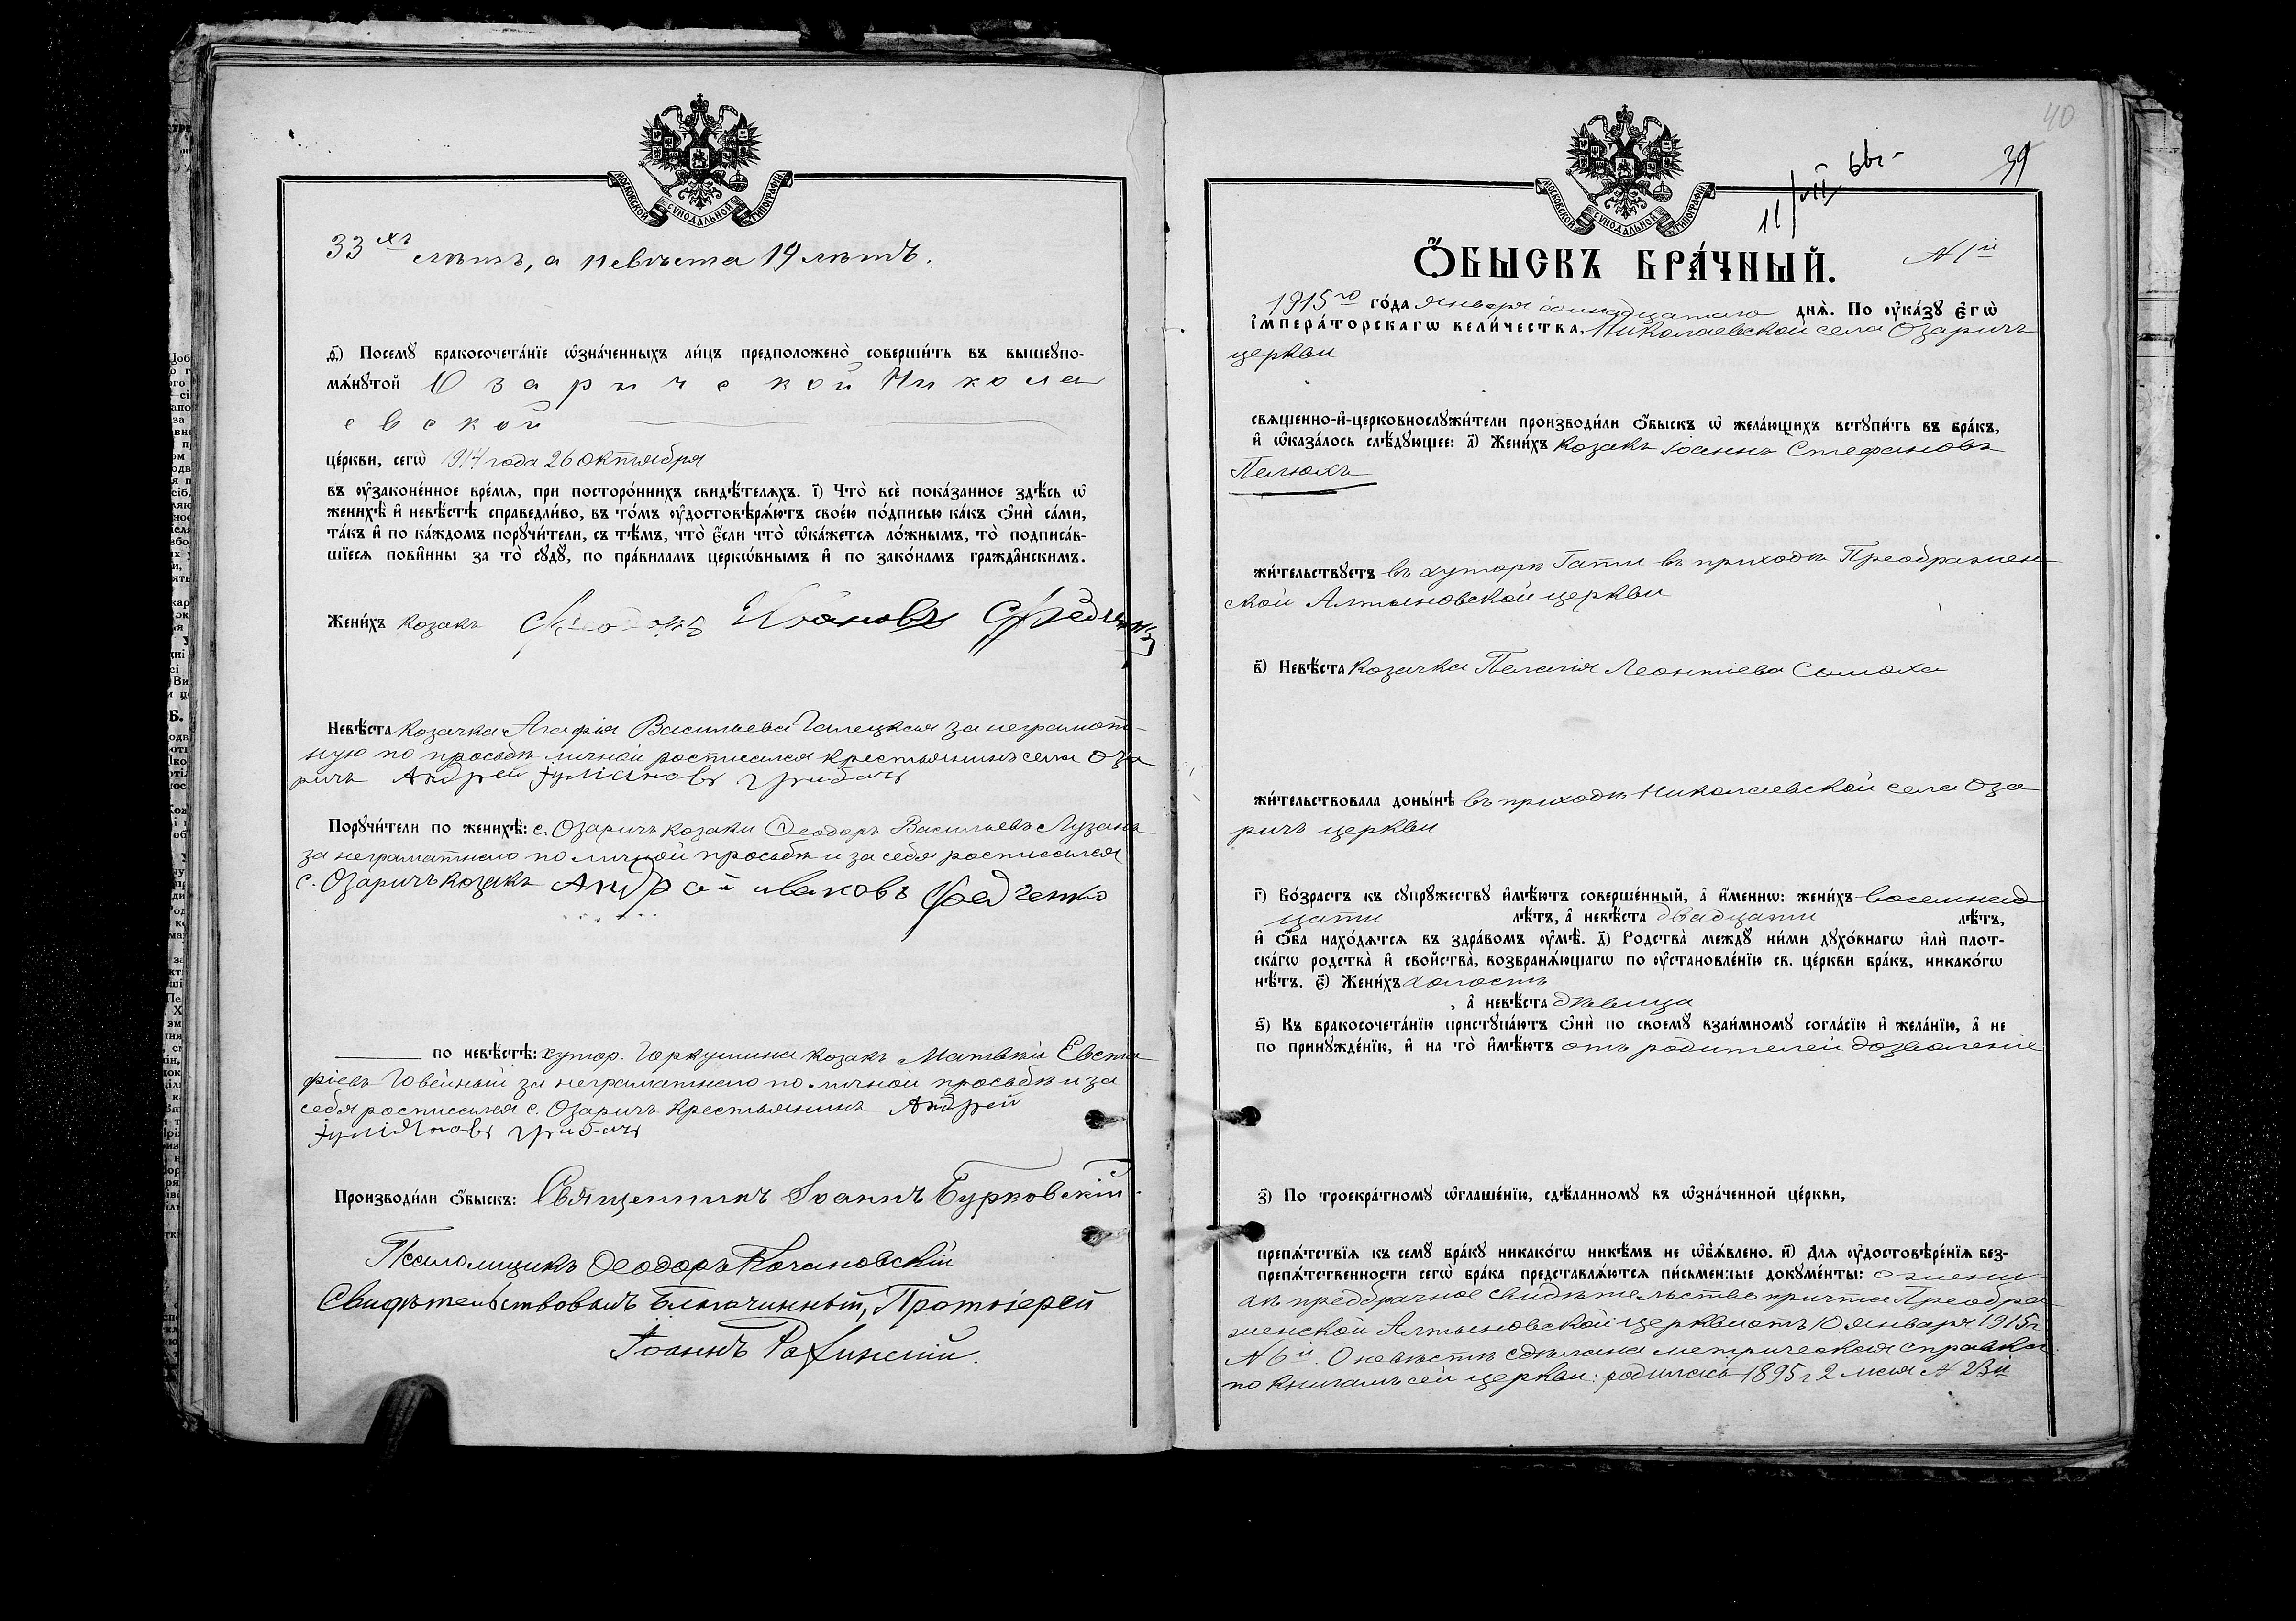 МОСКОВСКОЙ СѴНОДАЛЬНОЙ ТИПОГРАФІИ
33хъ лѣтъ, а невѣста 19 лѣтъ.
ѳ҃) Посемꙋ бракосочета́нїе ѡ҆зна́ченныхъ ли́цъ предположено̀ соверши́ть въ вышеꙋпо-
мѧ́нꙋтой Озаричской Никола
евской
це́ркви, сегѡ̀ 1914 года 26 октября
въ ᲂу҆законе́нное вре́мѧ, при посторо́ннихъ свидѣ́телѧхъ. і҃) Что̀ всѐ пока́занное здѣ́сь ѡ҆
женихѣ̀ и҆ невѣ́стѣ справедли́во, въ то́мъ ᲂу҆достовѣрѧ́ютъ свое́ю по́дписью ка́къ ѻ҆нѝ са́ми,
та́къ и҆ по ка́ждомъ порꙋчи́тели, съ тѣ́мъ, что̀ є҆́сли что̀ ѡ҆ка́жетсѧ ло́жнымъ, то̀ подписа́в-
шїесѧ пови́нны за то̀ сꙋдꙋ̀, по пра́виламъ церкѡ́внымъ и҆ по зако́намъ гражда̂нскимъ.
Жени́хъ козакъ Ивановъ Федченко
Невѣ́ста козачка Агафія Васильева Галецкая за неграмот-
ную по просьбѣ личной росписался крестьянинъ села Оза
ричъ Андрей Грибачъ
Порꙋчи́тели по женихѣ̀: с. Озаричъ козаки Ѳеодоръ Васильевъ Лузанъ
за неграматнаго по личной просьбѣ и за себя росписался
с. Озаричъ козакъ Андрей Яковъ Федченко
по невѣ́стѣ: хутор. Горкушина козакъ Матвѣй Евста
фіевъ Говѣйный за неграматнаго по личной просьбѣ и за
себя росписался с. Озаричъ крестьянинъ Андрей
Грибачъ
Производи́ли ѻ҆́быскъ: Священникъ Іоаннъ Бурковскій.
Псаломщикъ Ѳеодоръ Кочановскій
Свидѣтельствовалъ Благочинный, Протоіерей
Іоаннъ
40
39
11/VII 66г-
МОСКОВСКОЙ СѴНОДАЛЬНОЙ ТИПОГРАФІИ
Ѻ҆́БЫСКЪ БРА́ЧНЫЙ.
№ 1й
1915го го́да января одинадцатаго днѧ̀. По ᲂу҆ка́зꙋ є҆гѡ̀
і҆мпера́торскагѡ вели́чества, Николаевской села Озаричъ
церкви
свѧще́нно-и҆-церковнослꙋжи́тели производи́ли ѻ҆́быскъ ѡ҆ жела́ющихъ встꙋпи́ть въ бра́къ,
и҆ ѡ҆каза́лось слѣ́дꙋющее: а҃) Жени́хъ козакъ Іоаннъ Стефановъ
Пелюхъ
жи́тельствꙋетъ въ хуторѣ Гати въ приходѣ Преображен
ской Алтыновской церкви
в҃) Невѣ́ста козачка Пелагія Леонтіева Самоха
жи́тельствовала доны́нѣ въ приходѣ Николаевской села Оза
ричъ церкви
г҃) Во́зрастъ къ сꙋпрꙋ́жествꙋ и҆мѣ́ютъ соверше́нный, а҆ и҆́меннѡ: жени́хъ восемнад
цати лѣ́тъ, а҆ невѣ́ста двадцати лѣ́тъ,
и҆ ѻ҆́ба нахо́дѧтсѧ въ здра́вомъ ᲂу҆мѣ̀. д҃) Родства̀ междꙋ̀ ни́ми дꙋхо́внагѡ и҆лѝ плот-
ска́гѡ родства̀ и҆ сво́йства̀, возбранѧ́ющагѡ по ᲂу҆становле́нїю св. це́ркви бра́къ, никако́гѡ
нѣ́тъ. є҃) Жени́хъ холостъ
, а҆ невѣ́ста дѣвица
ѕ҃) Къ бракосочета́нїю пристꙋпа́ютъ ѻ҆нѝ по своемꙋ̀ взаи́мномꙋ согла́сїю и҆ жела́нїю, а҆ не
по принꙋжде́нїю, и҆ на то̀ и҆мѣ́ютъ отъ родителей дозволеніе
з҃) По троекра́тномꙋ ѡ҆глаше́нїю, сдѣ́ланномꙋ въ ѡ҆зна́ченной це́ркви,
препѧ́тствїѧ къ семꙋ̀ бра́кꙋ никако́гѡ никѣ́мъ не ѡ҆б̾ѧ́влено. и҃) Длѧ ᲂу҆достовѣре́нїѧ без-
препѧ́тственности сегѡ̀ бра́ка представлѧ́ютсѧ пи́сьменные докꙋме́нты: о жени-
хѣ предбрачное свидѣтельство причта Преобра-
женской Алтыновской церкви отъ 10 января 1915 г.
№ 6й. О невѣстѣ сдѣлана метрическая справка
по книгамъ сей церкви: родилась 1895 г 2 мая № 23й